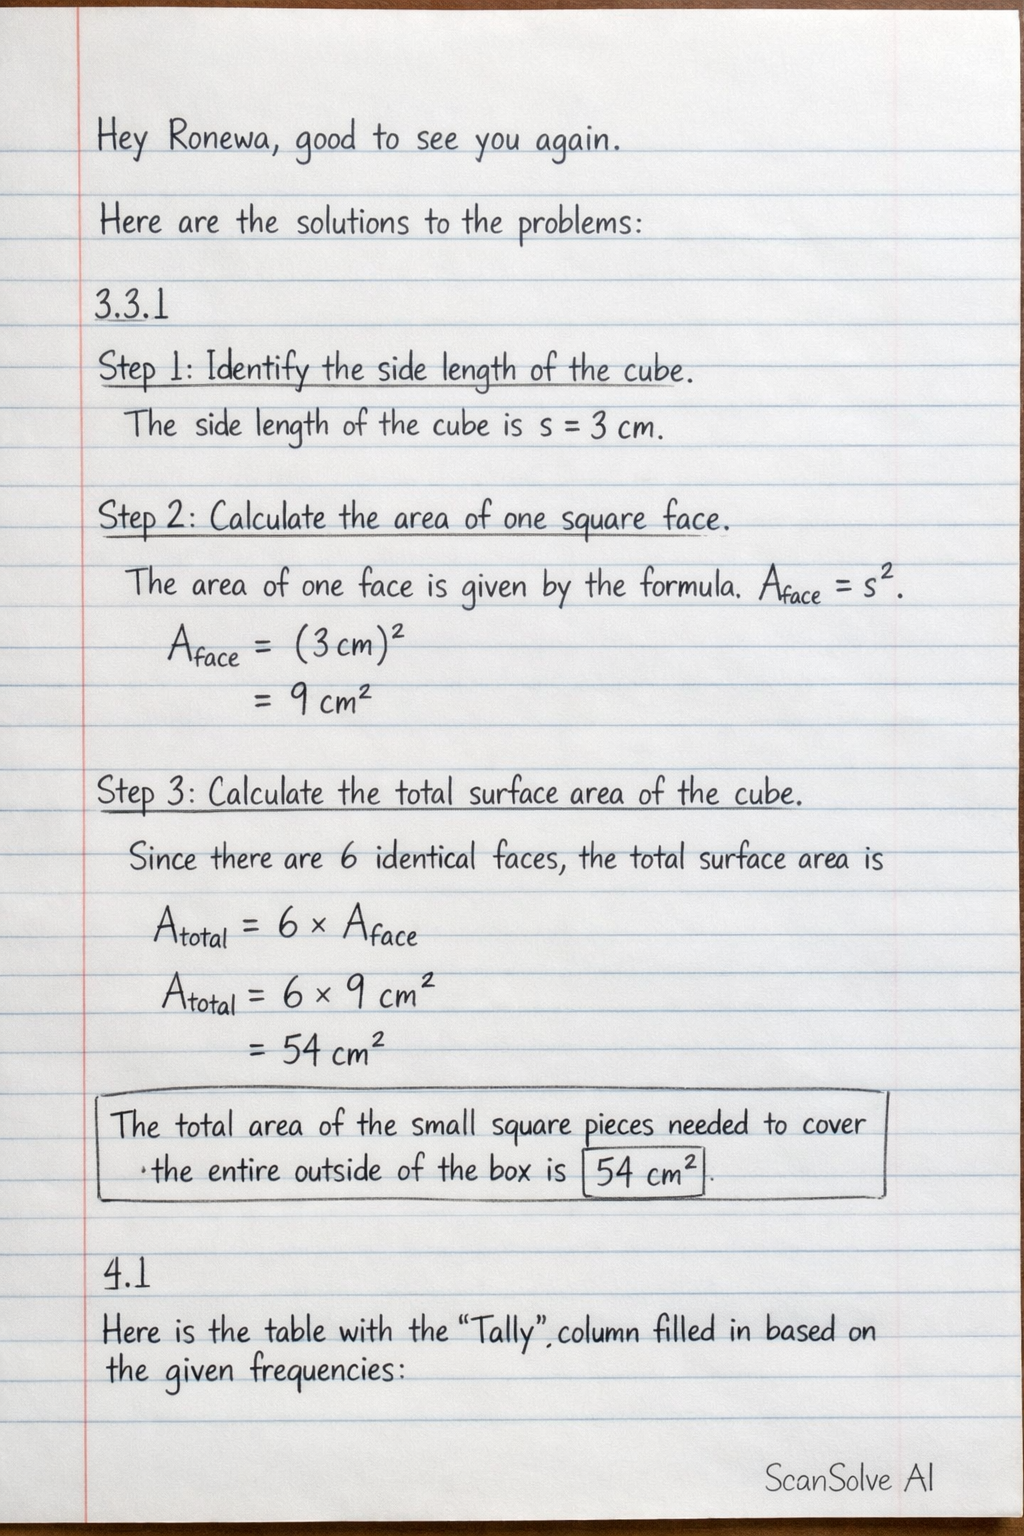 Hey Ronewa, good to see you again.
Here are the solutions to the problems:
3.3.1
Step 1: Identify the side length of the cube.
The side length of the cube is s = 3 cm.
Step 2: Calculate the area of one square face.
The area of one face is given by the formula. A_face = s².
A_face = (3 cm)²
= 9 cm²
Step 3: Calculate the total surface area of the cube.
Since there are 6 identical faces, the total surface area is
A_total = 6 × A_face
A_total = 6 × 9 cm²
= 54 cm²
The total area of the small square pieces needed to cover
·the entire outside of the box is 54 cm².
4.1
Here is the table with the “Tally”.column filled in based on
the given frequencies:
ScanSolve AI